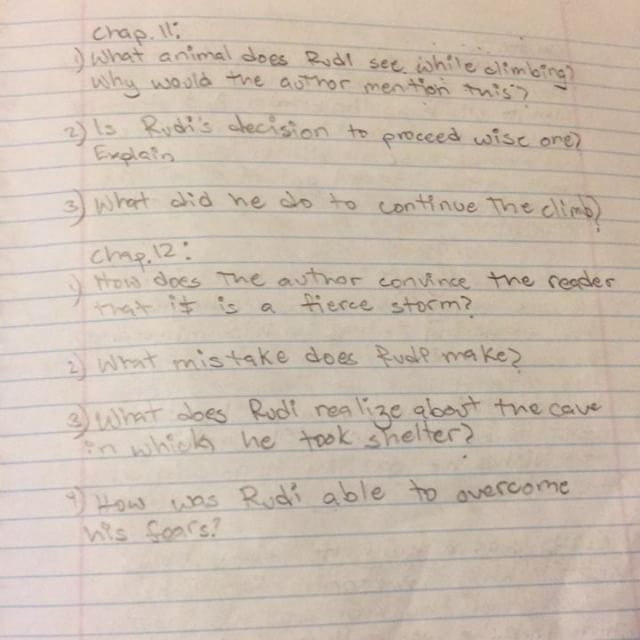 Chap. 11:
1) What animal does Rudi see while climbing?
Why would the author mention this?
2) Is Rudi's decision to proceed wise one?
Explain
3) What did he do to continue The climb?
Chap. 12:
1) How does The author convince the reader
that it is a fierce storm?
2) What mistake does Rudi make?
3) What does Rudi realize about the cave
in which he took shelter?
4) How was Rudi able to overcome
his fears?